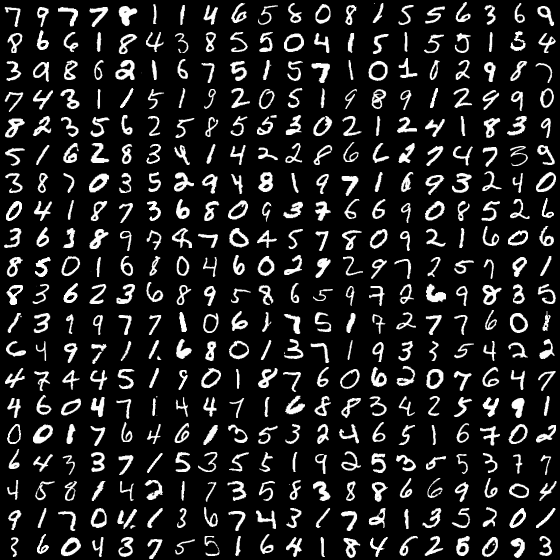 7 9 7 7 8 1 1 4 6 5 8 0 8 1 5 5 6 3 6 9
8 6 6 1 8 4 3 8 5 5 0 4 1 5 1 5 5 1 3 4
3 9 8 6 2 1 6 7 5 1 5 7 1 0 1 0 2 9 8 7
7 4 3 1 1 5 1 9 2 0 5 1 9 8 9 1 2 9 9 0
8 2 3 5 6 2 5 8 5 5 3 0 2 1 2 4 1 8 3 9
5 1 6 2 8 3 4 1 4 2 2 8 6 6 2 7 4 7 3 9
3 8 7 0 3 5 2 9 4 8 1 9 7 1 6 9 3 2 4 0
0 4 1 8 7 3 6 8 0 9 3 7 6 6 9 0 8 5 2 6
3 6 3 8 9 7 8 7 0 4 5 7 8 0 9 2 1 6 0 6
8 5 0 1 6 8 0 4 6 0 2 9 2 9 7 2 5 7 9 1
8 3 6 2 3 6 8 9 5 8 6 5 9 7 2 6 9 8 3 5
1 3 9 9 7 7 1 0 6 1 7 5 1 7 2 7 7 6 0 1
6 4 9 7 1 1 6 8 0 1 3 7 1 9 3 3 5 4 2 2
4 7 4 4 5 1 9 0 1 8 7 6 0 6 2 0 7 6 4 7
4 6 0 4 7 1 4 4 7 1 6 8 8 3 4 2 5 4 9 1
0 0 1 7 6 4 6 1 3 5 3 2 4 6 5 1 6 7 0 2
6 4 3 3 7 1 5 3 5 5 1 9 2 5 3 5 5 3 7 7
4 5 8 1 4 2 1 7 3 5 8 3 8 8 6 6 9 6 0 4
9 1 7 0 4 1 3 6 7 4 3 1 7 2 1 3 5 2 0 1
3 6 0 4 3 7 5 5 1 6 4 1 8 4 6 2 5 0 9 3